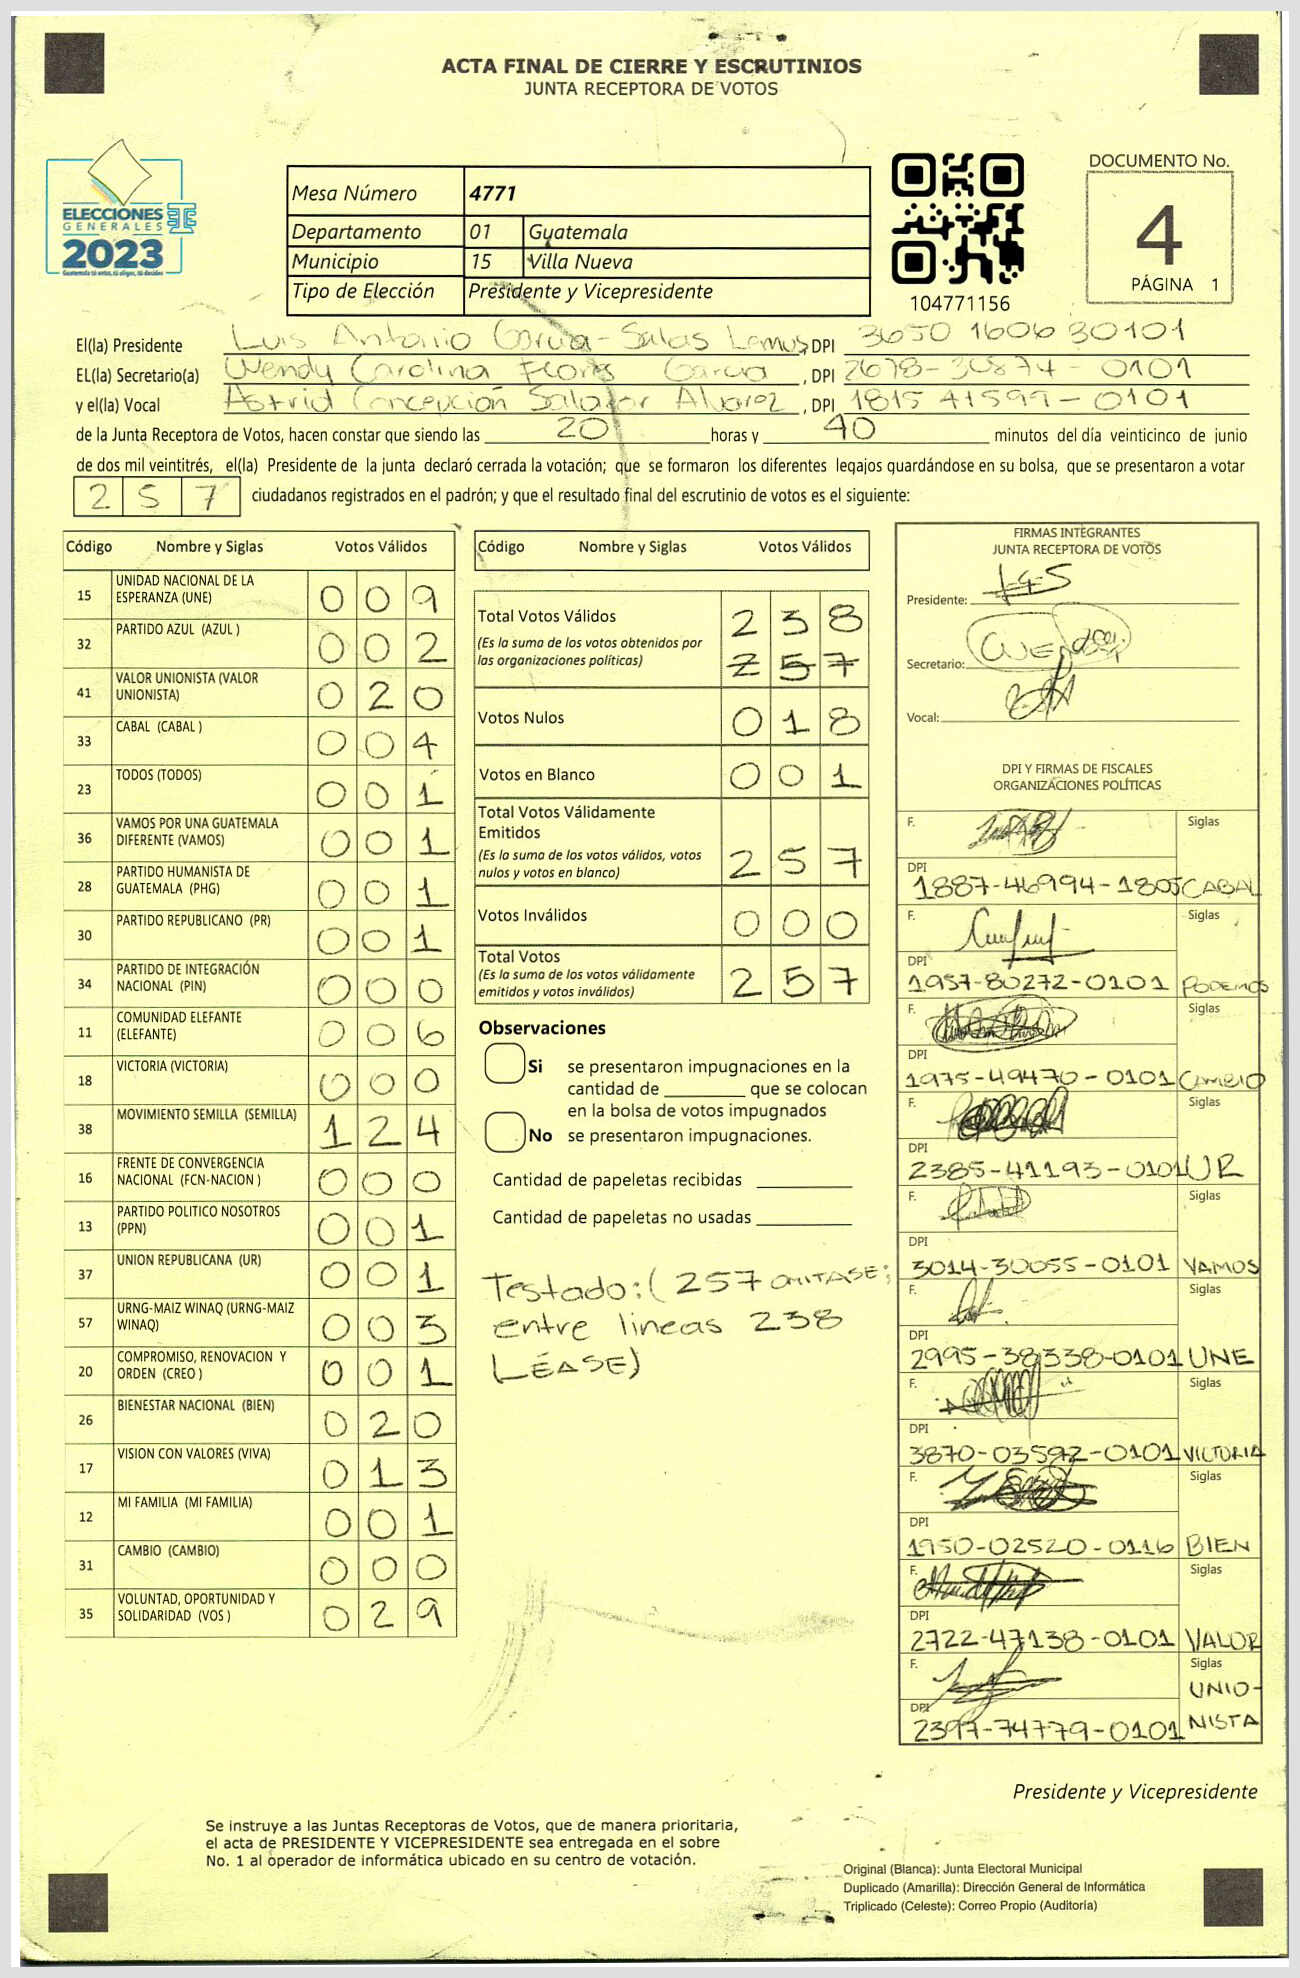 ACTA FINAL DE CIERRE Y ESCRUTINIOS
JUNTA RECEPTORA DE VOTOS
ELECCIONES
GENERALES
2023
Guatemala tú eres, tú eliges, tú decides
Mesa Número 4771
Departamento 01 Guatemala
Municipio 15 Villa Nueva
Tipo de Elección Presidente y Vicepresidente
104771156
DOCUMENTO No.
4
PÁGINA 1
El(la) Presidente Luis Antonio García-Salas Lemus, DPI 3650 16063 0101
EL(la) Secretario(a) Wendy Carolina Flores Garcia, DPI 2678-30874-0101
y el(la) Vocal Astrid Concepción Salazar Alvarez, DPI 1815 41599-0101
de la Junta Receptora de Votos, hacen constar que siendo las 20 horas y 40 minutos del día veinticinco de junio
de dos mil veintitrés, el(la) Presidente de la junta declaró cerrada la votación; que se formaron los diferentes legajos guardándose en su bolsa, que se presentaron a votar
257 ciudadanos registrados en el padrón; y que el resultado final del escrutinio de votos es el siguiente:
Código Nombre y Siglas Votos Válidos
15 UNIDAD NACIONAL DE LA ESPERANZA (UNE) 009
32 PARTIDO AZUL (AZUL ) 002
41 VALOR UNIONISTA (VALOR UNIONISTA) 020
33 CABAL (CABAL ) 004
23 TODOS (TODOS) 001
36 VAMOS POR UNA GUATEMALA DIFERENTE (VAMOS) 001
28 PARTIDO HUMANISTA DE GUATEMALA (PHG) 001
30 PARTIDO REPUBLICANO (PR) 001
34 PARTIDO DE INTEGRACIÓN NACIONAL (PIN) 000
11 COMUNIDAD ELEFANTE (ELEFANTE) 006
18 VICTORIA (VICTORIA) 000
38 MOVIMIENTO SEMILLA (SEMILLA) 124
16 FRENTE DE CONVERGENCIA NACIONAL (FCN-NACION ) 000
13 PARTIDO POLITICO NOSOTROS (PPN) 001
37 UNION REPUBLICANA (UR) 001
57 URNG-MAIZ WINAQ (URNG-MAIZ WINAQ) 003
20 COMPROMISO, RENOVACION Y ORDEN (CREO ) 001
26 BIENESTAR NACIONAL (BIEN) 020
17 VISION CON VALORES (VIVA) 013
12 MI FAMILIA (MI FAMILIA) 001
31 CAMBIO (CAMBIO) 000
35 VOLUNTAD, OPORTUNIDAD Y SOLIDARIDAD (VOS ) 029
Código Nombre y Siglas Votos Válidos
Total Votos Válidos 238
(Es la suma de los votos obtenidos por las organizaciones políticas) 257
Votos Nulos 018
Votos en Blanco 001
Total Votos Válidamente Emitidos
(Es la suma de los votos válidos, votos nulos y votos en blanco) 257
Votos Inválidos 000
Total Votos
(Es la suma de los votos válidamente emitidos y votos inválidos) 257
Observaciones
Si se presentaron impugnaciones en la
cantidad de ________ que se colocan
en la bolsa de votos impugnados
No se presentaron impugnaciones.
Cantidad de papeletas recibidas
Cantidad de papeletas no usadas
Testado: (257 OMITASE;
entre lineas 238
LÉASE)
FIRMAS INTEGRANTES
JUNTA RECEPTORA DE VOTOS
Presidente:
Secretario:
Vocal:
DPI Y FIRMAS DE FISCALES
ORGANIZACIONES POLÍTICAS
F. Siglas
DPI
1887-46994-1805 CABAL
F. Siglas
DPI
1957-80272-0101 PODEMOS
F. Siglas
DPI
1975-49470-0101 CAMBIO
F. Siglas
DPI
2385-41193-0101 UR
F. Siglas
DPI
3014-30055-0101 VAMOS
F. Siglas
DPI
2995-38338-0101 UNE
F. Siglas
DPI
3870-03592-0101 VICTORIA
F. Siglas
DPI
1950-02520-0116 BIEN
F. Siglas
DPI
2722-47138-0101 VALOR
F. Siglas
UNIO-
DPI
2397-74779-0101 NISTA
Presidente y Vicepresidente
Se instruye a las Juntas Receptoras de Votos, que de manera prioritaria,
el acta de PRESIDENTE Y VICEPRESIDENTE sea entregada en el sobre
No. 1 al operador de informática ubicado en su centro de votación.
Original (Blanca): Junta Electoral Municipal
Duplicado (Amarilla): Dirección General de Informática
Triplicado (Celeste): Correo Propio (Auditoría)